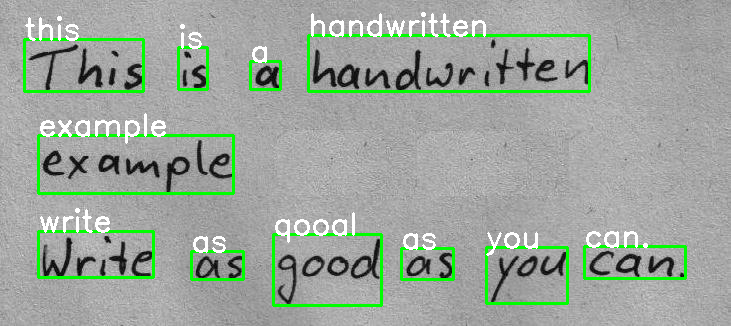 this is a handwritten
This is a handwritten
example
example
write as qooal as you can.
Write as good as you can.